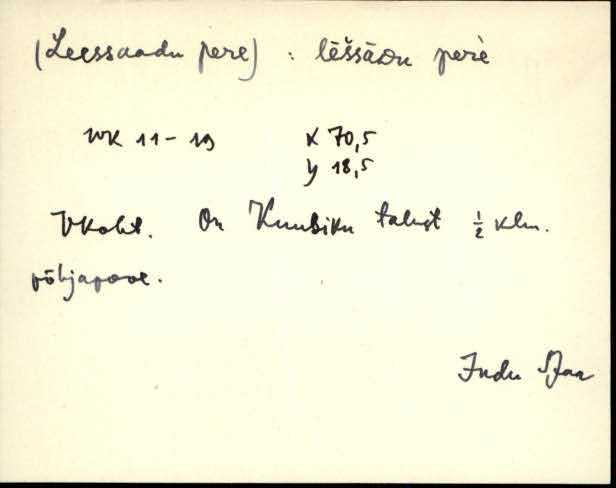 (Leessaadu pere) : lēššāDu perè
WK 11-19 X 70,5
y 18,5
Vkoht. On Kuusiku talust ½ klm.
põhjapool.
Judu